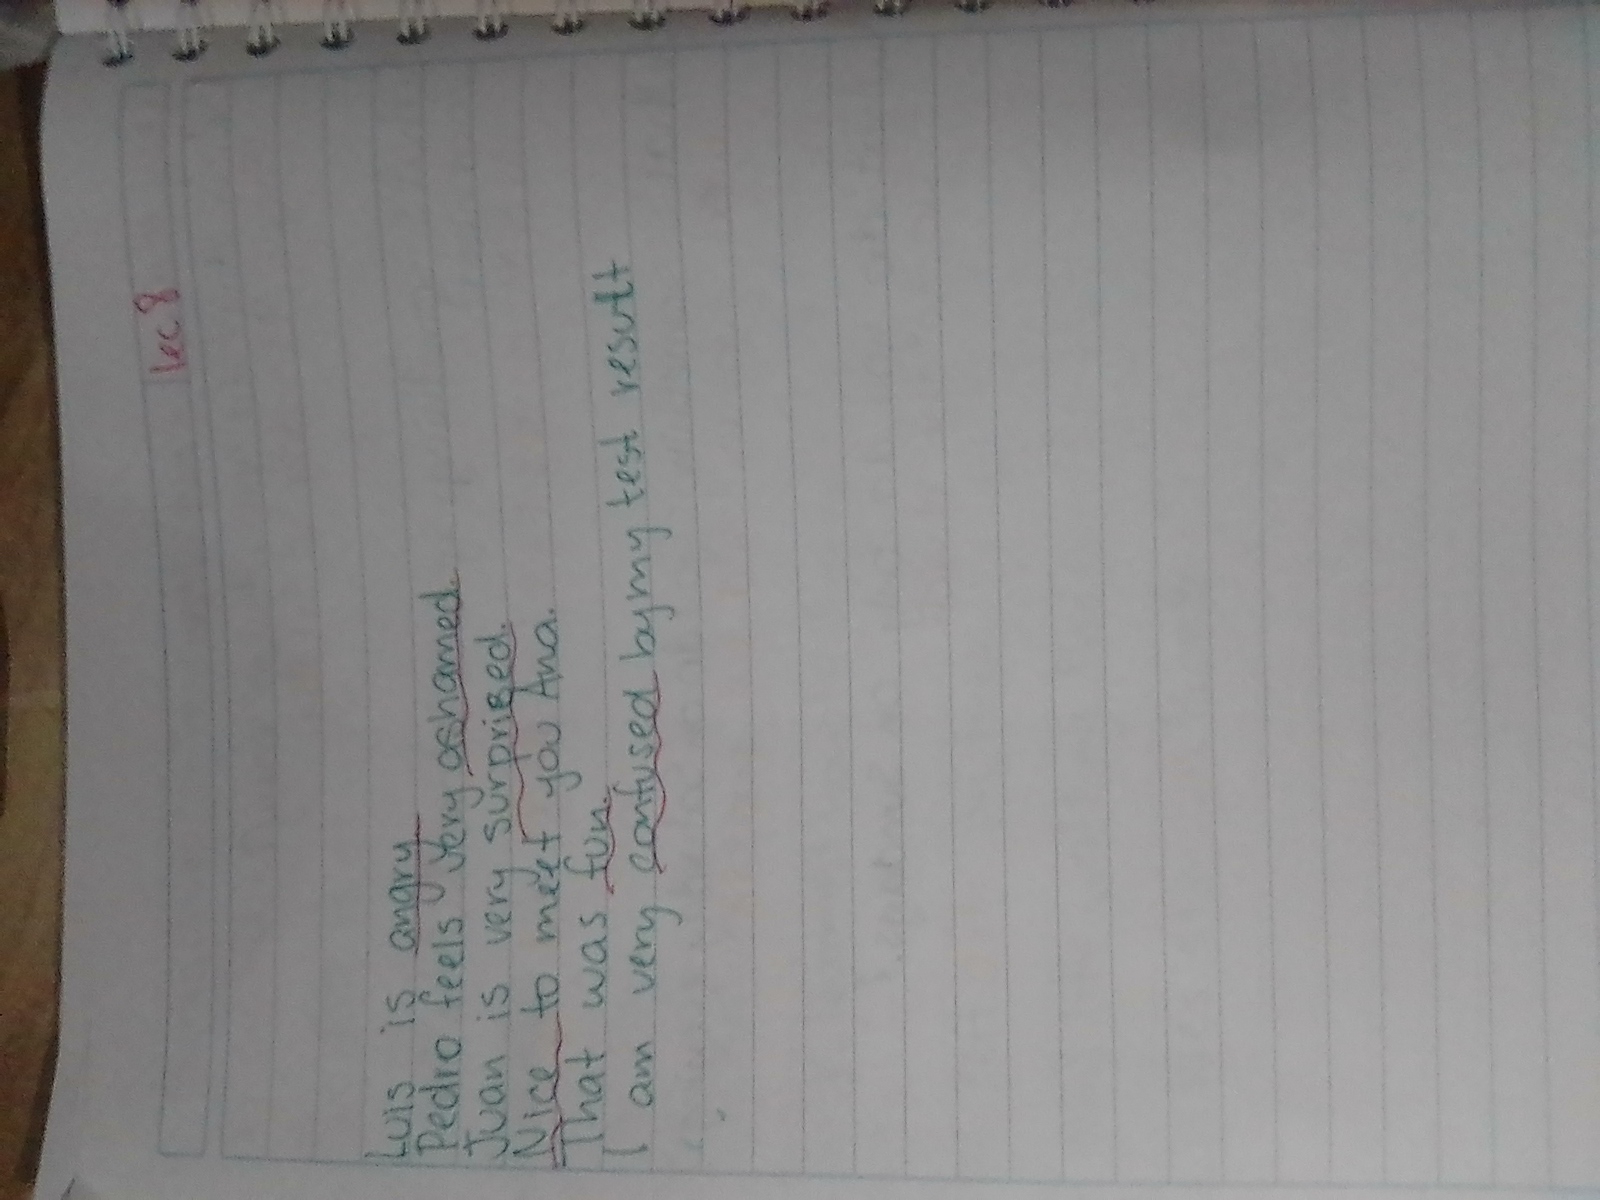 lec 8
Luis is angry
Pedro feels very ashamed.
Juan is very surprised.
Nice to meet you Ana.
That was fun.
I am very confused by my test result